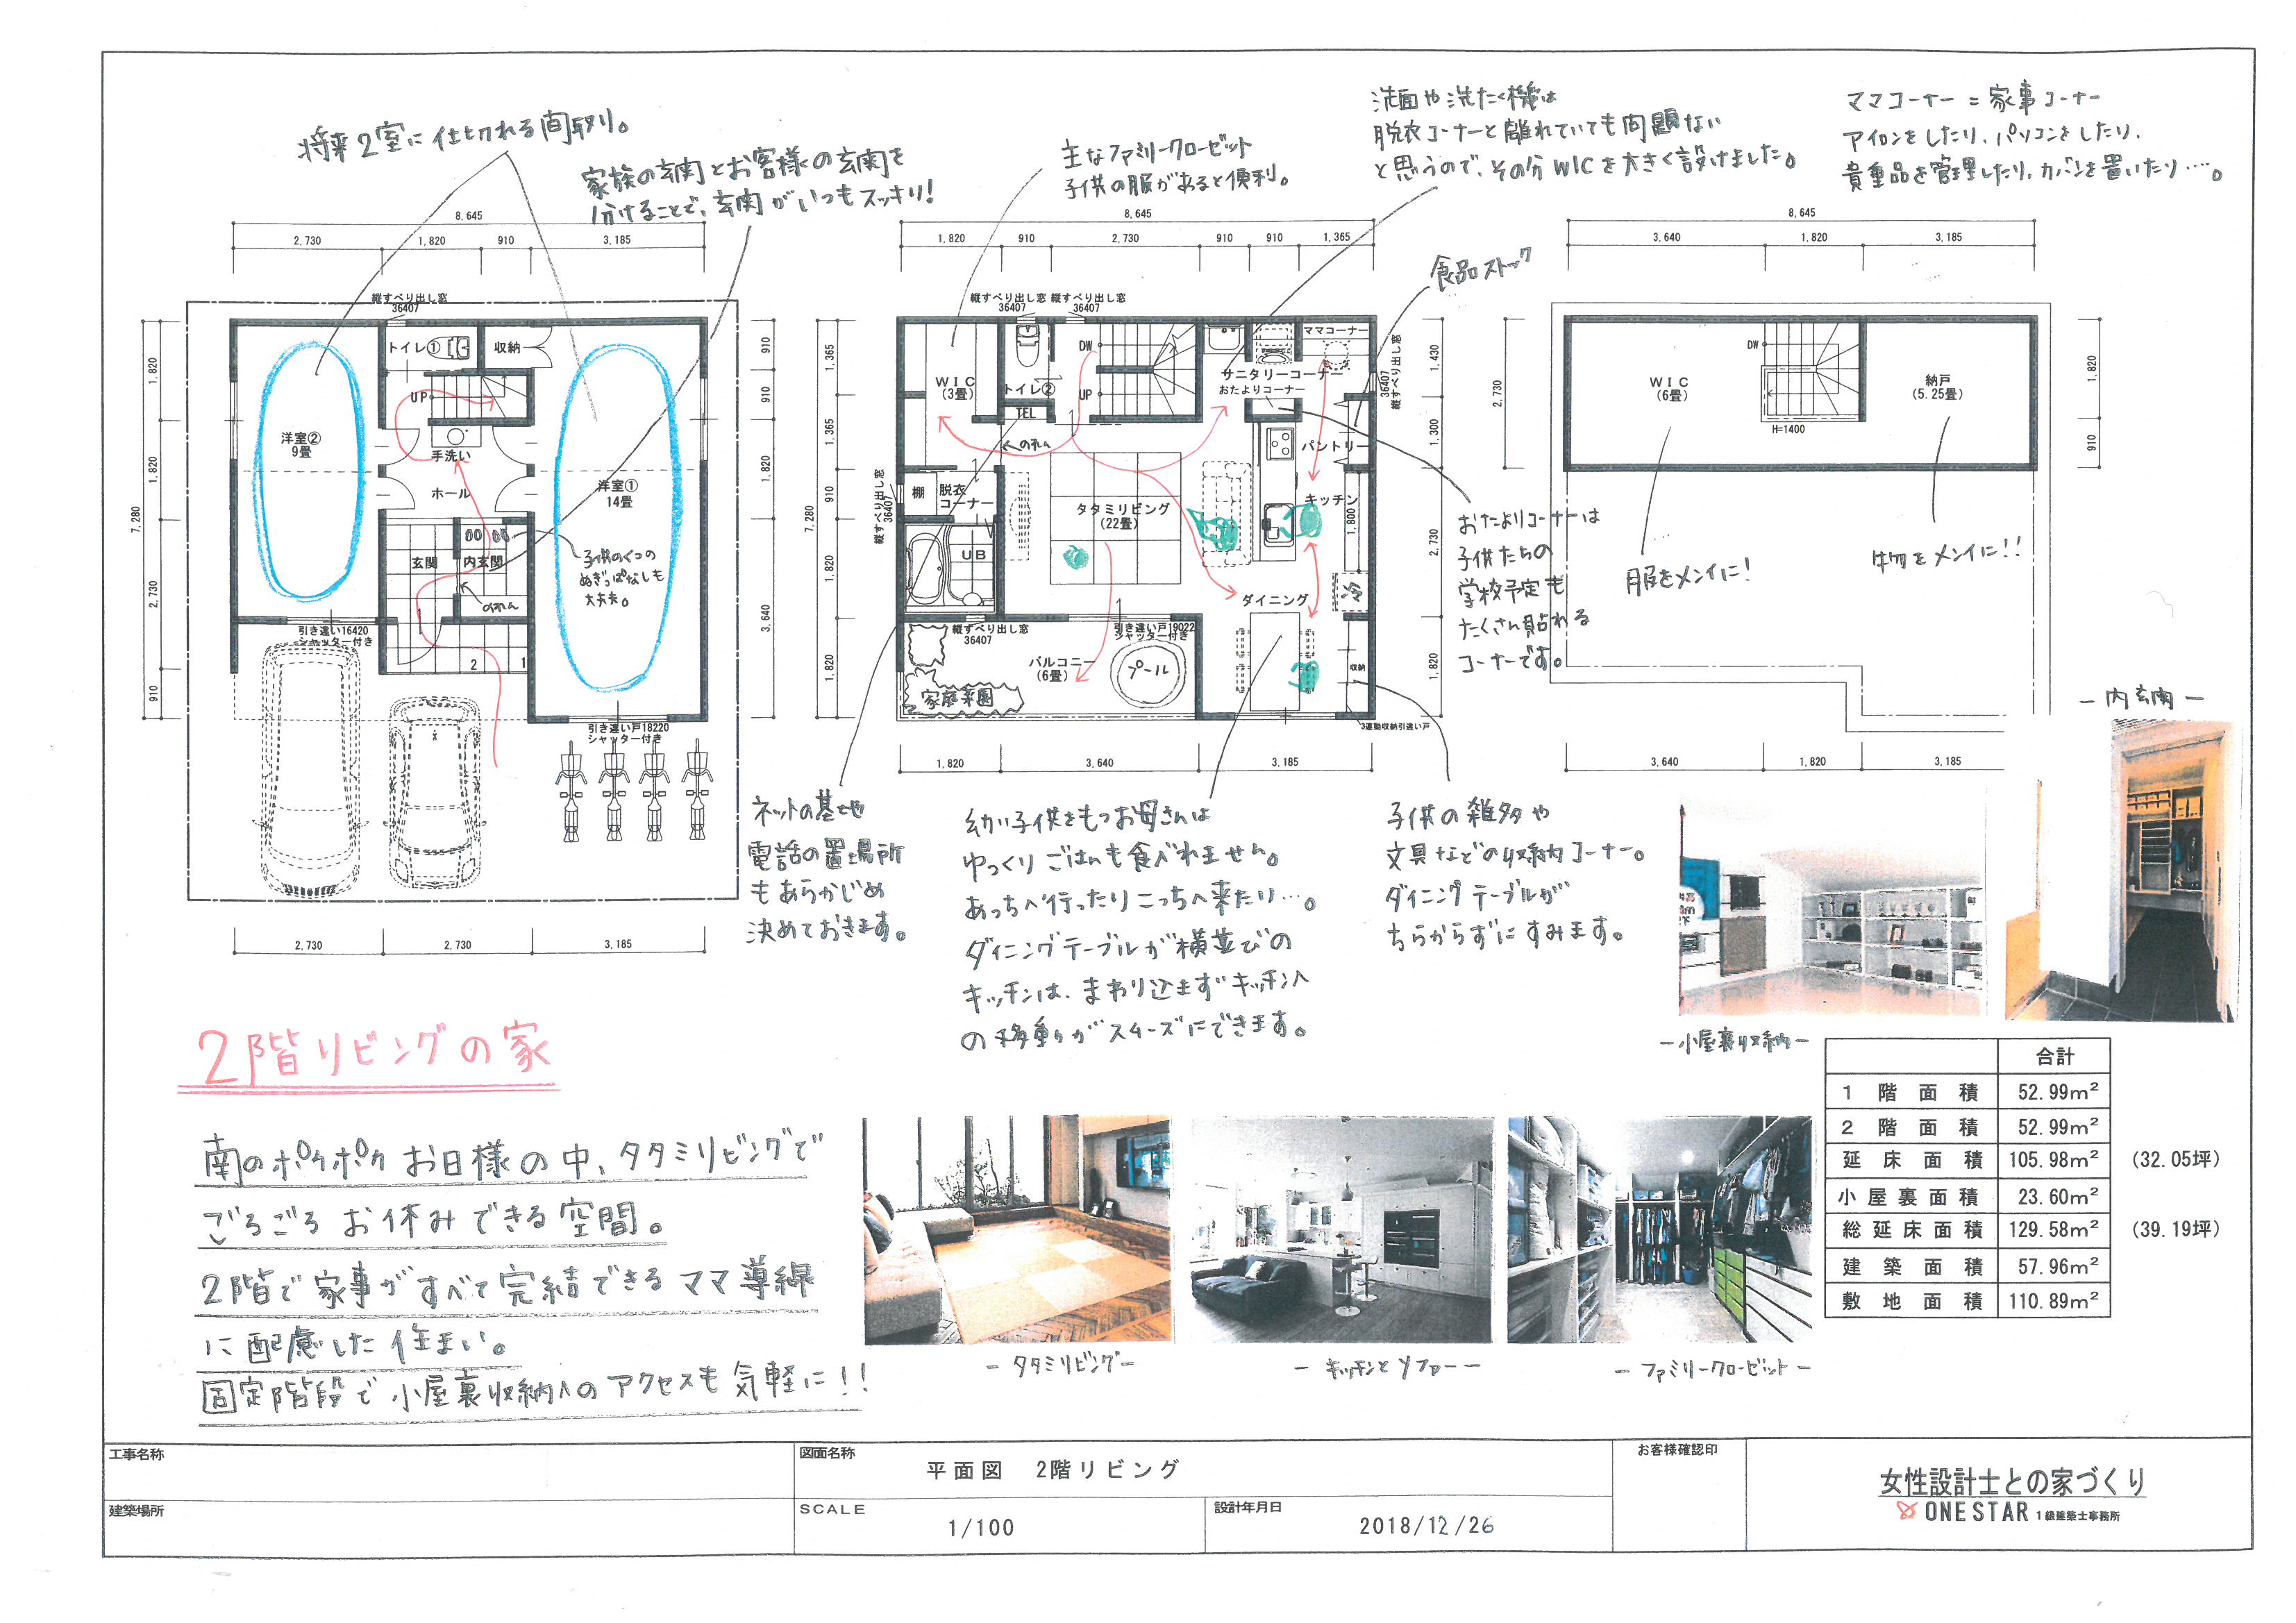 将来2室に仕切れる間取り。
家族の玄関とお客様の玄関を
分けることで、玄関がいつもスッキリ!
主なファミリークローゼット
子供の服があると便利。
洗面や洗たく機は
脱衣コーナーと離れていても問題ない
と思うので、その分WICを大きく設けました。
ママコーナー=家事コーナー
アイロンをしたり、パソコンをしたり、
貴重品を管理したり、カバンを置いたり…。
食品ストック
8,645
2,730 1,820 910 3,185
縦すべり出し窓
36407
トイレ①
収納
UP
洋室②
9畳
手洗い
ホール
洋室①
14畳
玄関
内玄関
のれん
子供のくつの
ぬぎっぱなしも
大丈夫。
引き違い16420
シャッター付き
2 1
引き違い戸18220
シャッター付き
7,280
1,820
1,820
2,730
910
910
910
1,820
3,640
2,730 2,730 3,185
8,645
1,820 910 2,730 910 910 1,365
縦すべり出し窓 縦すべり出し窓
36407 36407
DW
ママコーナー
WIC
(3畳)
トイレ②
UP
サニタリーコーナー
おたよりコーナー
TEL
のれん
パントリー
棚
脱衣
コーナー
タタミリビング
(22畳)
キッチン
1,800
UB
ダイニング
縦すべり出し窓
36407
引き違い戸19022
シャッター付き
バルコニー
(6畳)
プール
家庭菜園
収納
3連動収納引違い戸
縦すべり出し窓
36407
縦すべり出し窓
36407
7,280
1,365
1,365
910
1,820
1,820
1,430
1,300
2,730
1,820
1,820 3,640 3,185
8,645
3,640 1,820 3,185
DW
WIC
(6畳)
納戸
(5.25畳)
H=1400
2,730
1,820
910
3,640 1,820 3,185
服をメインに!
物をメインに!!
おたよりコーナーは
子供たちの
学校予定も
たくさん貼れる
コーナーです。
ネットの基地や
電話の置場所
もあらかじめ
決めておきます。
幼い子供をもつお母さんは
ゆっくりごはんも食べれません。
あっちへ行ったりこっちへ来たり…。
ダイニングテーブルが横並びの
キッチンは、まわり込まずキッチンへ
の移動がスムーズにできます。
子供の雑多や
文具などの収納コーナー。
ダイニングテーブルが
ちらからずにすみます。
-内玄関-
-小屋裏収納-
2階リビングの家
南のポカポカお日様の中、タタミリビングで
ごろごろお休みできる空間。
2階で家事がすべて完結できるママ導線
に配慮した住まい。
固定階段で小屋裏収納へのアクセスも気軽に!!
-タタミリビング-
-キッチンとソファー-
-ファミリークローゼット-
合計
1階面積 52.99m²
2階面積 52.99m²
延床面積 105.98m² (32.05坪)
小屋裏面積 23.60m²
総延床面積 129.58m² (39.19坪)
建築面積 57.96m²
敷地面積 110.89m²
工事名称
建築場所
図面名称
平面図 2階リビング
SCALE
1/100
設計年月日
2018/12/26
お客様確認印
女性設計士との家づくり
ONE STAR 1級建築士事務所